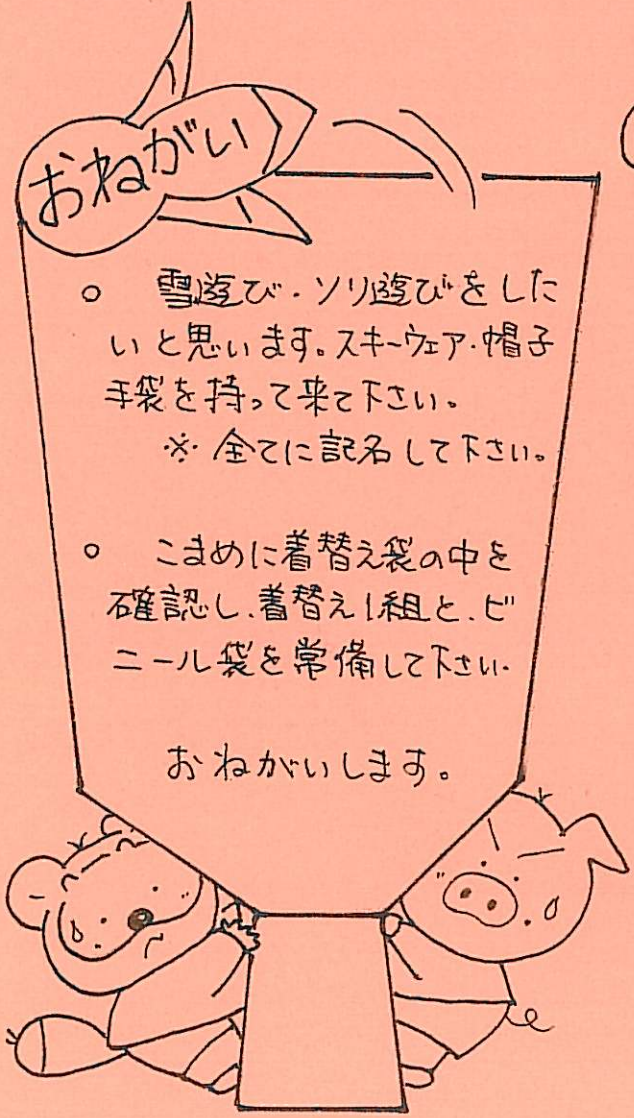 おねがい
○ 雪遊び・ソリ遊びをした
いと思います。スキーウェア・帽子
手袋を持って来て下さい。
※ 全てに記名して下さい。
○ こまめに着替え袋の中を
確認し、着替え1組と、ビ
ニール袋を常備して下さい。
おねがいします。